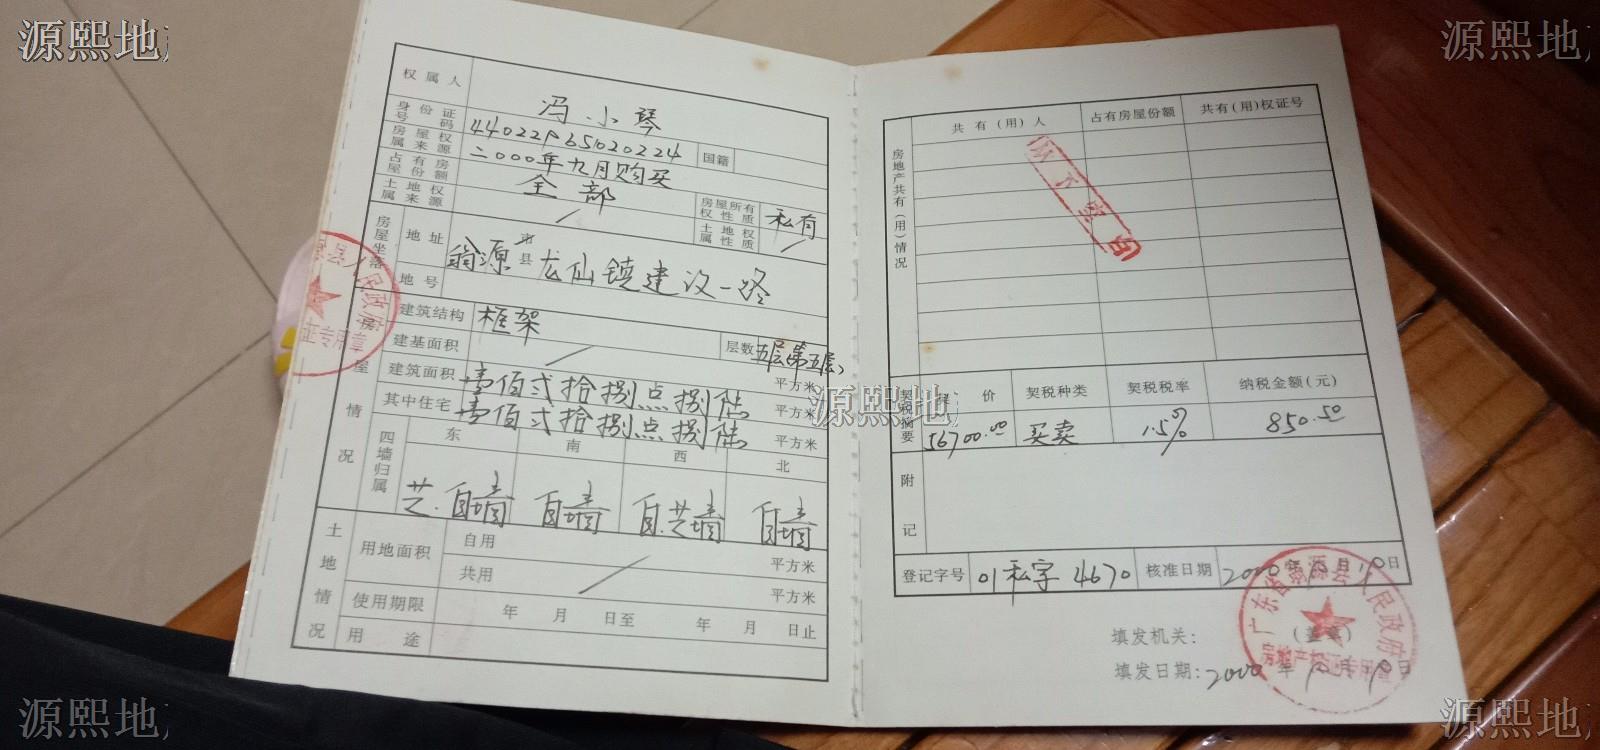 源熙地
源熙地
权属人 冯小琴
身份证号码 440229651020224 国籍
房屋权属来源 二000年九月购买
占有房屋份额 全部 房屋所有权性质 私有
土地权属来源 / 土地权属性质 /
房屋坐落 地址 翁源市县龙仙镇建设一路
地号
房屋情况
建筑结构 框架 层数 五层(第五层)
建基面积 / 平方米
建筑面积 壹佰弍拾捌点捌陆 平方米
其中住宅 壹佰弍拾捌点捌陆 平方米
四墙归属 东 南 西 北
自墙 自墙 自墙
土地情况
用地面积 自用 平方米
共用 / 平方米
使用期限 年 月 日至 年 月 日止
用途
房地产共有(用)情况
共有(用)人 占有房屋份额 共有(用)权证号
以下空白
源熙地
契税摘要 价 契税种类 契税税率 纳税金额(元)
56700.00 买卖 1.5% 850.50
附记
登记字号 01私字4670 核准日期 2000年10月10日
填发机关: (盖章)
填发日期: 2000年10月10日
广东省翁源县人民政府
房地产权证专用章
县人民政府
证专用章
源熙地
源熙地